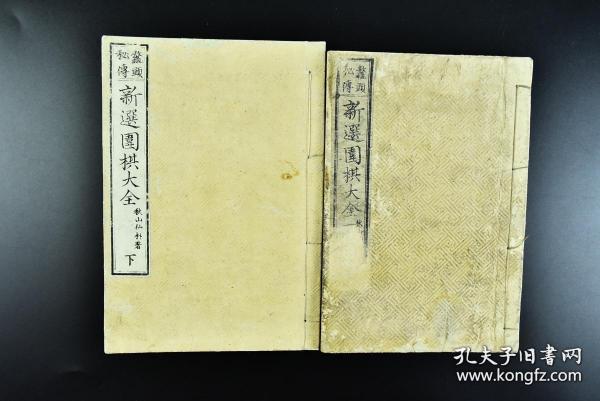 鼇頭
秘傳
新選圍棋大全
秋山仙朴著
下
鼇頭
秘傳
新選圍棋大全
孔夫子旧书网
www.kongfz.com